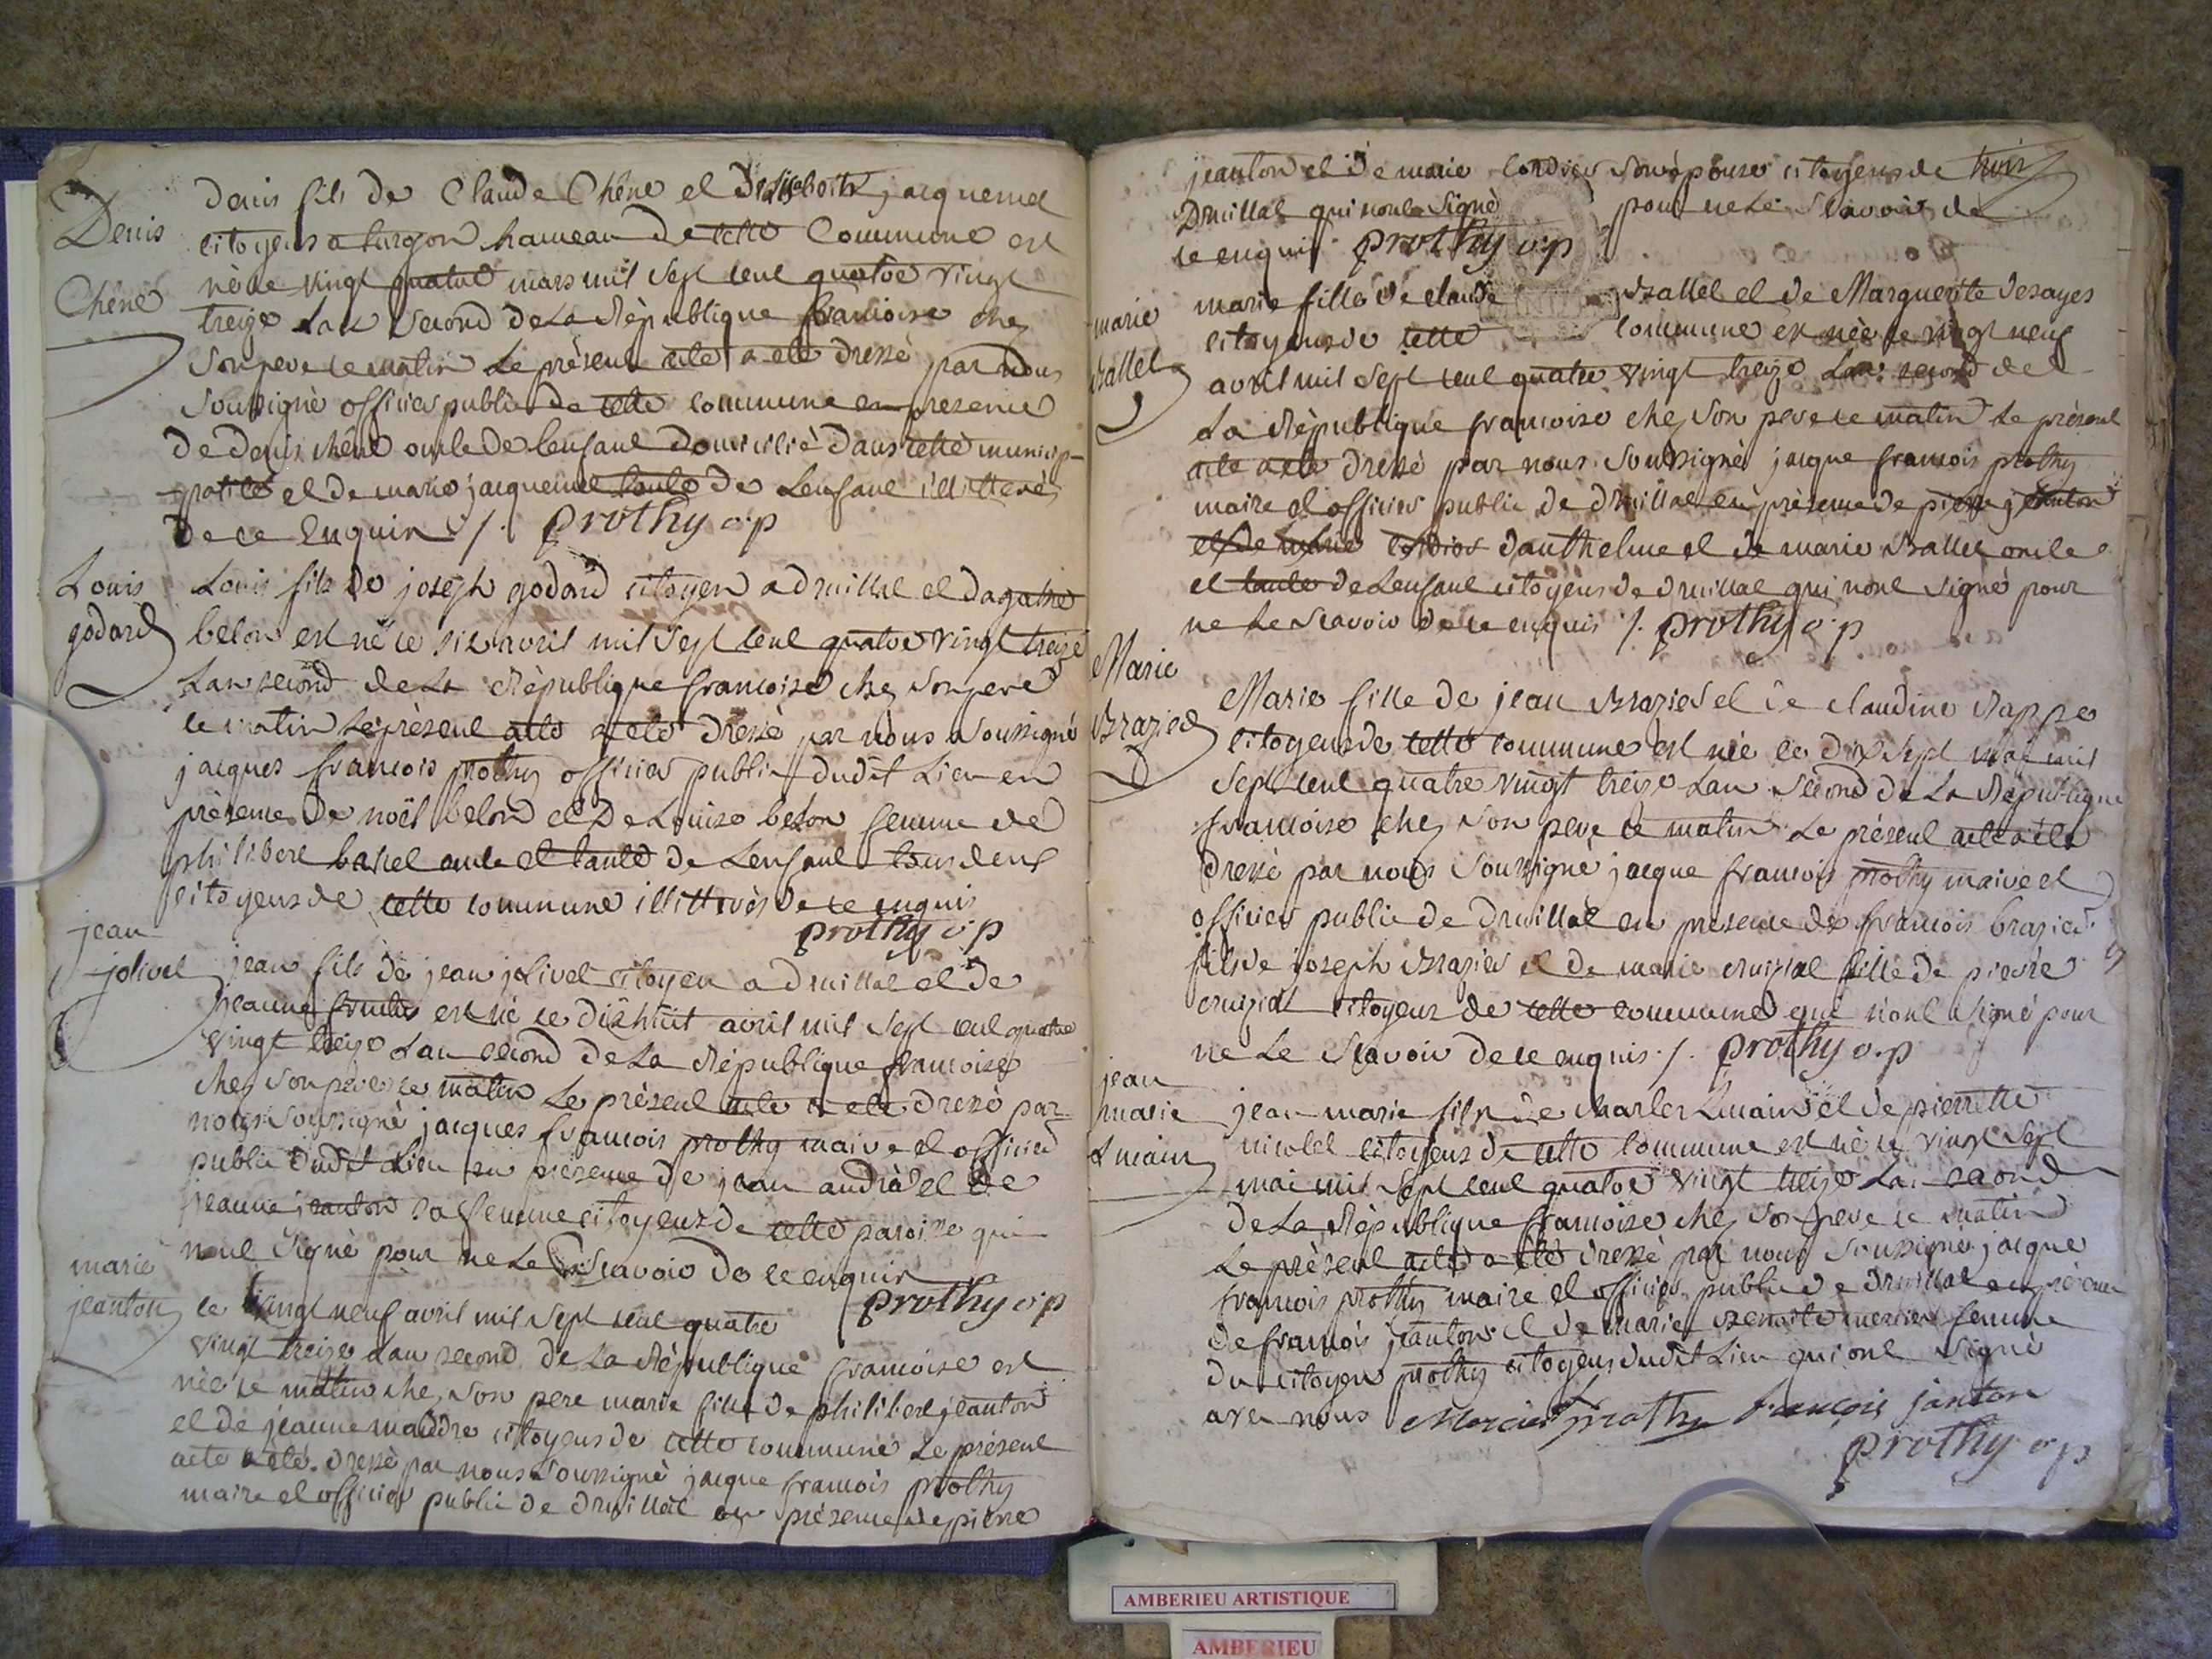 Denis
Chêne
denis fils de Claude Chêne et d'Elisabeth jacquemet
citoyens a turgon hameau de cette Commune est
né le vingt quatre mars mil sept cent quatre vingt
treize Lan second de La République francoise chez
son pere ce matin Le présent acte a été dressé par nous
soussigné officier public de cette commune en presence
de denis chêne oncle de lenfant domicilié dans cette municip-
palité et de marie jacquemet tante de Lenfant illitterés
de ce Enquis /. prothy o.p
Louis
godard
Louis fils de joseph godard citoyen a druillat et dagathe
belon est né ce six avril mil sept cent quatre vingt treize
Lan second de La République francoise chez son pere
ce matin Le présent acte a été dressé par nous soussigné
jacques francois prothy officier public dudit Lieu en
présence de noël belon et de Louise belon femme de
philibert oncle et tante de Lenfant tous deux
citoyens de cette commune illittrés de ce enquis
prothy o.p
jean
jolivet
jean fils de jean jolivet citoyen a druillat et de
jeanne est né ce dixhuit avril mil sept cent quatre
vingt treize Lan second de La République francoise
chez son père ce matin Le présent acte a été dressé par
nous soussigné jacques francois prothy maire et officier
public dudit Lieu en présence de jean andré et de
jeanne jeanton sa femme citoyens de cette paroisse qui
nont signé pour ne Le scavoir de ce enquis
prothy o.p
marie
jeanton
le vingt neuf avril mil sept cent quatre
vingt treize Lan second de La République francoise est
née ce matin chez son pere marie fille de philibert jeanton
et de jeanne citoyens de cette commune Le présent
acte a été dressé par nous soussigné jacque francois prothy
maire et officier public de druillat en présence de pierre
jeanton et de marie cordier son épouse citoyens de
Druillat qui nont signé pour ne Le scavoir de
ce enquis prothy o.p
marie
Ballet
marie fille de claude Ballet et de Marguerite desayes
citoyens de cette commune est née ce vingt neuf
avril mil sept cent quatre vingt treize Lan second de
La République francoise chez son pere ce matin Le présent
acte a été dressé par nous soussigné jacque francois prothy
maire et officier public de druillat en présence de pierre jeanton
et de marie cordier danthelme et de marie Ballet oncle
et tante de Lenfant citoyens de druillat qui nont signé pour
ne Le scavoir de ce enquis /. prothy o.p
Marie
Brazier
Marie fille de jean Brazier et de claudine Rappe
citoyens de cette commune est née ce dix sept mai mil
sept cent quatre vingt treize Lan second de La République
francoise chez son pere ce matin Le présent acte a été
dressé par nous soussigné jacque francois prothy maire et
officier public de druillat en presence de francois brazier
fils de joseph Brazier et de marie cruiziat fille de pierre
cruiziat citoyens de cette commune qui nont signé pour
ne Le scavoir de ce enquis /. prothy o.p
jean
marie
Lmain
jean marie fils de charles Lmain et de pierrette
nicolet citoyens de cette commune est né ce vingt sept
mai mil sept cent quatre vingt treize Lan second
de La République francoise chez son pere ce matin
Le présent acte a été dressé par nous soussigné jacque
francois prothy maire et officier public de druillat en présence
de francois jeanton et de marie Benoite mercier femme
du citoyen prothy citoyens dudit Lieu qui ont signé
avec nous Mercier prothy francois janton
prothy o.p
AMBERIEU ARTISTIQUE
AMBERIEU